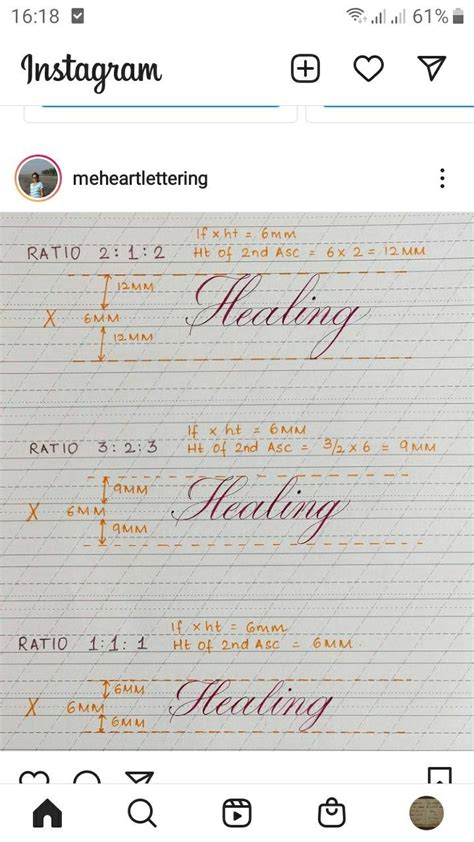 16:18 61%
Instagram
meheartlettering
If x ht = 6mm
RATIO 2:1:2 Ht of 2nd Asc = 6 x 2 = 12MM
12MM
X 6MM Healing
12MM
If x ht = 6MM
RATIO 3:2:3 Ht of 2nd Asc = 3/2 x 6 = 9MM
9MM
X 6MM Healing
9MM
If x ht = 6mm
RATIO 1:1:1 Ht of 2nd Asc = 6MM
6MM
X 6MM Healing
6MM